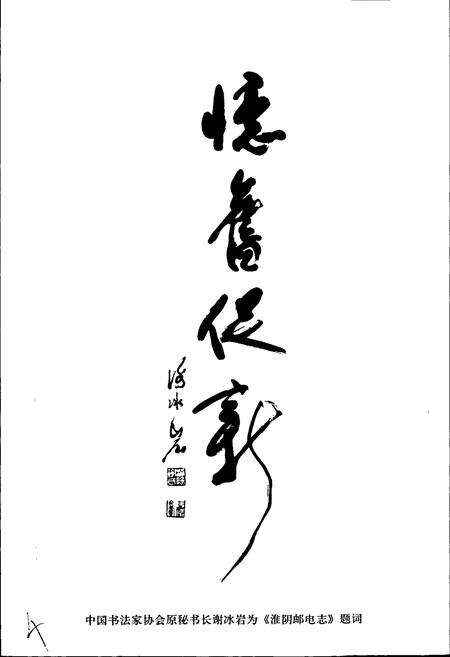 憶舊促新
谢冰岩
中国书法家协会原秘书长谢冰岩为《淮阴邮电志》题词